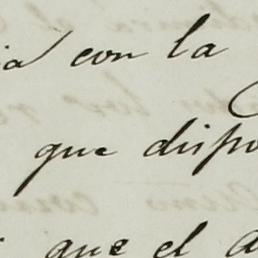 ia con la
que dispo
que el a